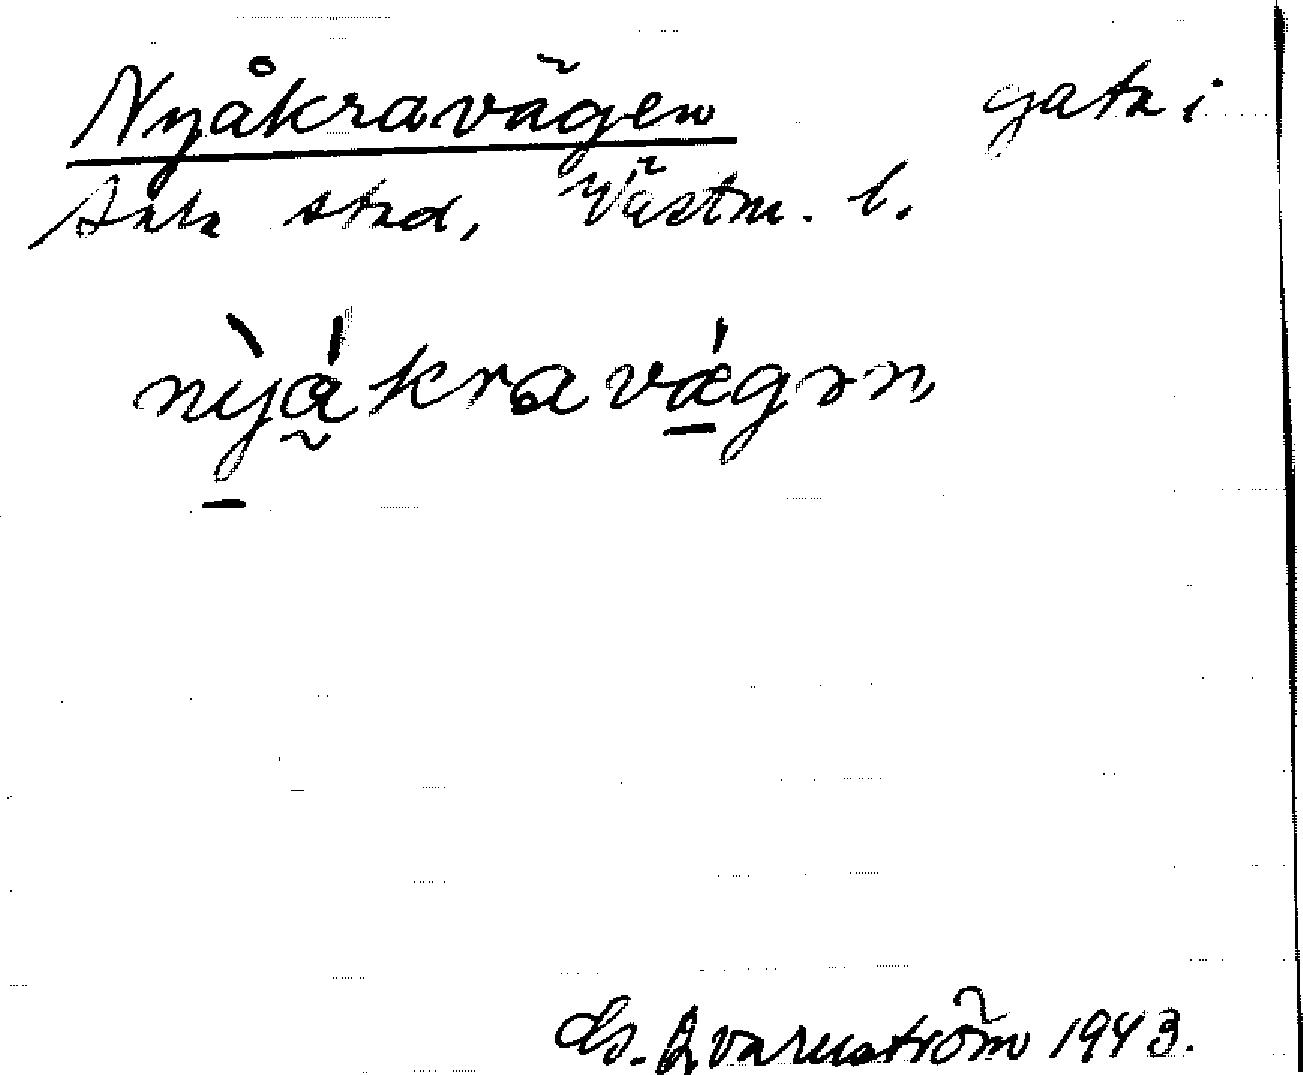 Nyåkravägen gata i
Sala stad, Västm. l.
nỳǻkravǽgən
Qvarnström 1943.